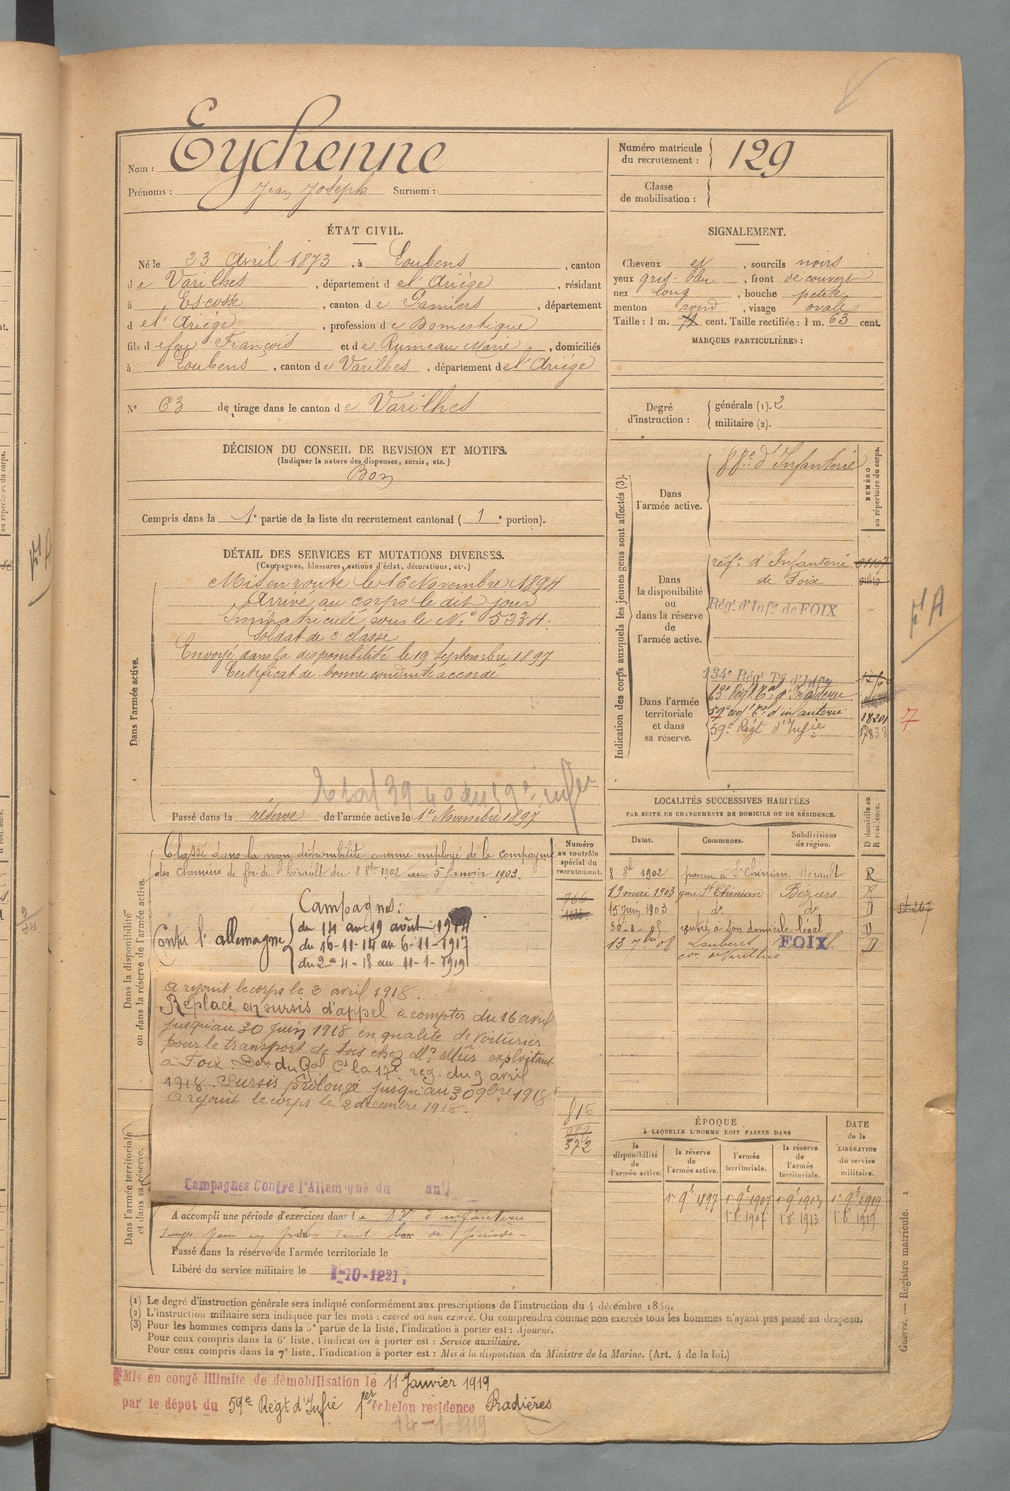 Nom : Eychenne
Prénoms : Jean Joseph Surnom :
Numéro matricule du recrutement : 129
Classe de mobilisation :
ÉTAT CIVIL.
Né le 23 Avril 1873, à Loubens, canton
de Varilhes, département de l'Ariège, résidant
à Escosse, canton de Pamiers, département
de l'Ariège, profession de Domestique
fils de feu François et de Rumeau Marie, domiciliés
à Loubens, canton de Varilhes, département de l'Ariège
N° 63 de tirage dans le canton de Varilhes
SIGNALEMENT.
Cheveux et, sourcils noirs
yeux gris-bleu, front découvert
nez long, bouche petite
menton rond, visage ovale
Taille : 1 m. cent. Taille rectifiée : 1 m. 63 cent.
MARQUES PARTICULIÈRES :
Degré d'instruction : générale (1). 2
militaire (2).
DÉCISION DU CONSEIL DE REVISION ET MOTIFS.
(Indiquer la nature des dispenses, sursis, etc.)
Bon
Compris dans la 1e partie de la liste du recrutement cantonal (1e portion).
DÉTAIL DES SERVICES ET MUTATIONS DIVERSES.
(Campagnes, blessures, actions d'éclat, décorations, etc.)
Dans l'armée active.
Mis en route le 16 Novembre 1894
Arrivé au corps le dit jour
Immatriculé sous le N° 5334.
Soldat de 2e classe
Envoyé dans la disponibilité le 19 Septembre 1897
Certificat de bonne conduite accordé
Passé dans la réserve de l'armée active le 1er Novembre 1897
Indication des corps auxquels les jeunes gens sont affectés (3).
NUMÉRO au répertoire du corps.
Dans l'armée active.
88e d'Infanterie
Dans la disponibilité ou dans la réserve de l'armée active.
régt d'Infanterie
de Foix
Régt d'Infie de FOIX
Dans l'armée territoriale et dans sa réserve.
134e Régt Tal d'Infie
63e régt Tal d'Infanterie
59e régt Tal d'infanterie 18201
59e Régt d'Infie
7
Dans la disponibilité ou dans la réserve de l'armée active.
Classé dans la non disponibilité comme employé de la compagnie
des chemins de fer de l'Hérault du 8 8bre 1902 au 5 Janvier 1903.
Campagnes :
Contre l'Allemagne
du 14 au 19 août 1914
du 16-11-14 au 6-11-1917
du 2-4-18 au 11-1-1919
A rejoint le corps le 2 avril 1918.
Replacé en sursis d'appel à compter du 16 avril
jusqu'au 30 juin 1918 en qualité de Voiturier
pour le transport de bois chez Mr Mûis exploitant
à Foix. Don du Gal Ct la 17e rég. du 9 avril
1918. Sursis prolongé jusqu'au 30 9bre 1918
A rejoint le corps le 2 décembre 1918.
Campagnes Contre l'Allemagne du au
Numéro au contrôle spécial du recrutement.
766
815
372
Dans l'armée territoriale et dans sa réserve.
A accompli une période d'exercices dans le
Passé dans la réserve de l'armée territoriale le
Libéré du service militaire le 1-10-1921,
LOCALITÉS SUCCESSIVES HABITÉES
PAR SUITE DE CHANGEMENTS DE DOMICILE OU DE RÉSIDENCE.
Dates. Communes. Subdivisions de région. D domicile ou R résidence.
8 8bre 1902 St Chinian Hérault R
19 mai 1903 gare St Chinian Béziers R
15 juin 1903 do do D
rentré à son domicile légal D
13 7bre 08 Loubens FOIX D
con de Varilhes
ÉPOQUE
À LAQUELLE L'HOMME DOIT PASSER DANS
la disponibilité de l'armée active.
la réserve de l'armée active.
l'armée territoriale.
la réserve de l'armée territoriale.
DATE de la LIBÉRATION du service militaire.
1er 9bre 1897 1er 9bre 1907 1er 9bre 1913 1er 9bre 1919
1.8.1907 1.8.1913 1.8.1919
(1) Le degré d'instruction générale sera indiqué conformément aux prescriptions de l'instruction du 4 décembre 1889.
(2) L'instruction militaire sera indiquée par les mots : exercé ou non exercé. On comprendra comme non exercés tous les hommes n'ayant pas passé au drapeau.
(3) Pour les hommes compris dans la 5e partie de la liste, l'indication à porter est : Ajourné.
Pour ceux compris dans la 6e liste, l'indication à porter est : Service auxiliaire.
Pour ceux compris dans la 7e liste, l'indication à porter est : Mis à la disposition du Ministre de la Marine. (Art. 4 de la loi.)
Guerre. — Registre matricule. 1
Mis en congé illimité de démobilisation le 11 Janvier 1919
par le dépôt du 59e Régt d'Infie 1er échelon résidence Pradières
14-1-1919